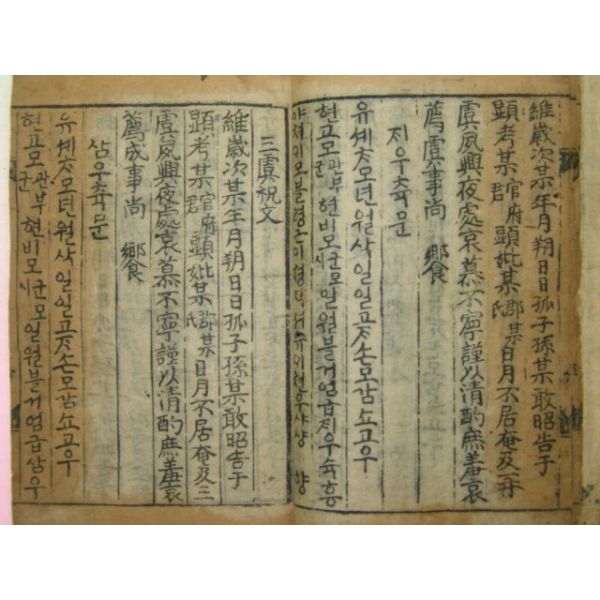 維歲次某年月朔日日孤子孫某敢昭告于
顯考某官府君 顯妣某郡某氏日月不居奄及再
虞夙興夜處哀慕不寧謹以清酌庶羞哀
薦虞事尚 饗
지우츅문
유셰ᄎᆞ모년월삭일일고ᄌᆞ손모감쇼고우
현고모관부군 현비모군모시일월불거엄급지우슉흥
야쳐이모불령근이쳥작셔슈이쳔우사샹 향
三虞祝文
維歲次某年月朔日日孤子孫某敢昭告于
顯考某官府君 顯妣某郡某氏日月不居奄及三
虞夙興夜處哀慕不寧謹以清酌庶羞哀
薦成事尚 饗
삼우츅문
유셰ᄎᆞ모년월삭일일고ᄌᆞ손모감쇼고우
현고모관부군 현비모군모시일월불거엄급삼우